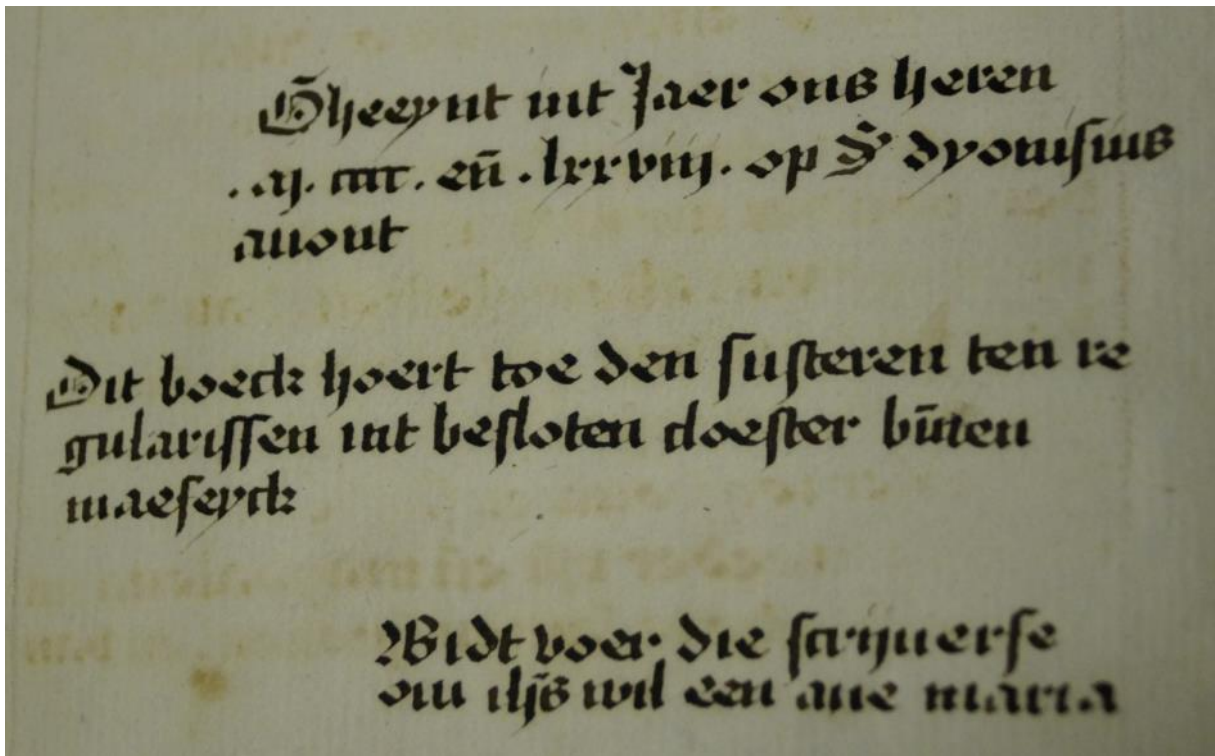 Gheeynt int Jaer ons heren
. M. cccc. en̄ . lxxviij. op S̄ dyonisius
auont
Dit boeck hoert toe den susteren ten re
gularissen int besloten cloester būten
maeseyck
Bidt voer die scrijuerse
om ih̄s wil een aue maria